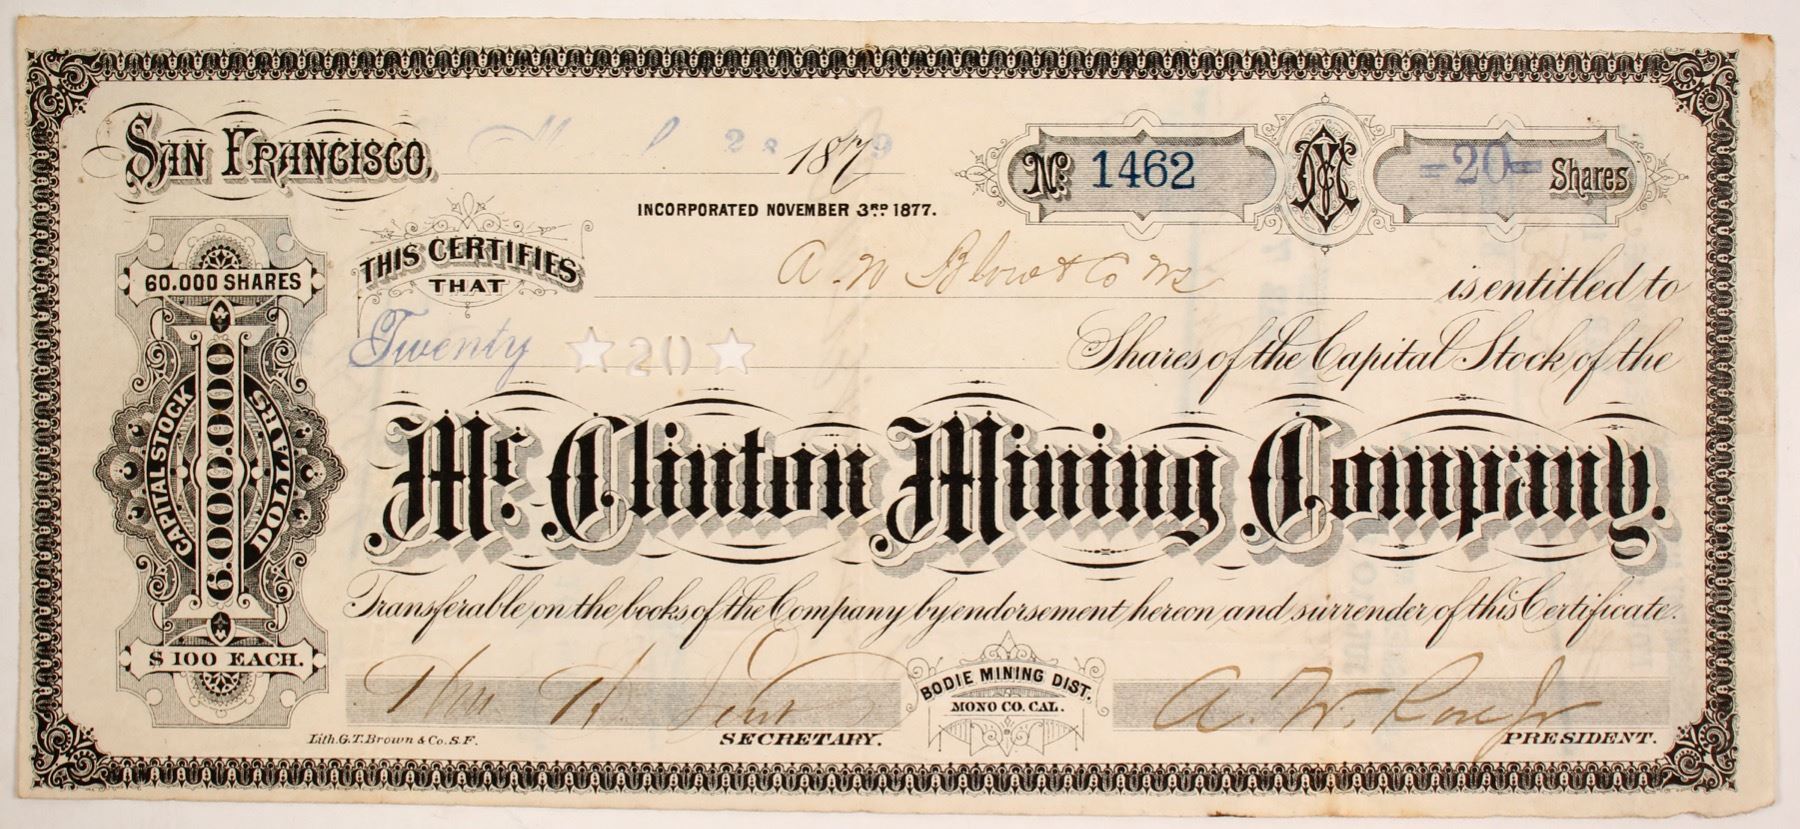 San Francisco, 28 1879
INCORPORATED NOVEMBER 3RD 1877.
No. 1462
-20- Shares
THIS CERTIFIES THAT A. W. Blow & Co is entitled to
Twenty ★20★ Shares of the Capital Stock of the
Mc. Clinton Mining Company.
Transferable on the books of the Company by endorsement hereon and surrender of this Certificate.
60.000 SHARES
CAPITAL STOCK
6.000.000
DOLLARS
$100 EACH.
Wm. H. SECRETARY.
BODIE MINING DIST.
MONO CO. CAL.
A. W. Rose Jr PRESIDENT.
Lith. G.T. Brown & Co. S.F.